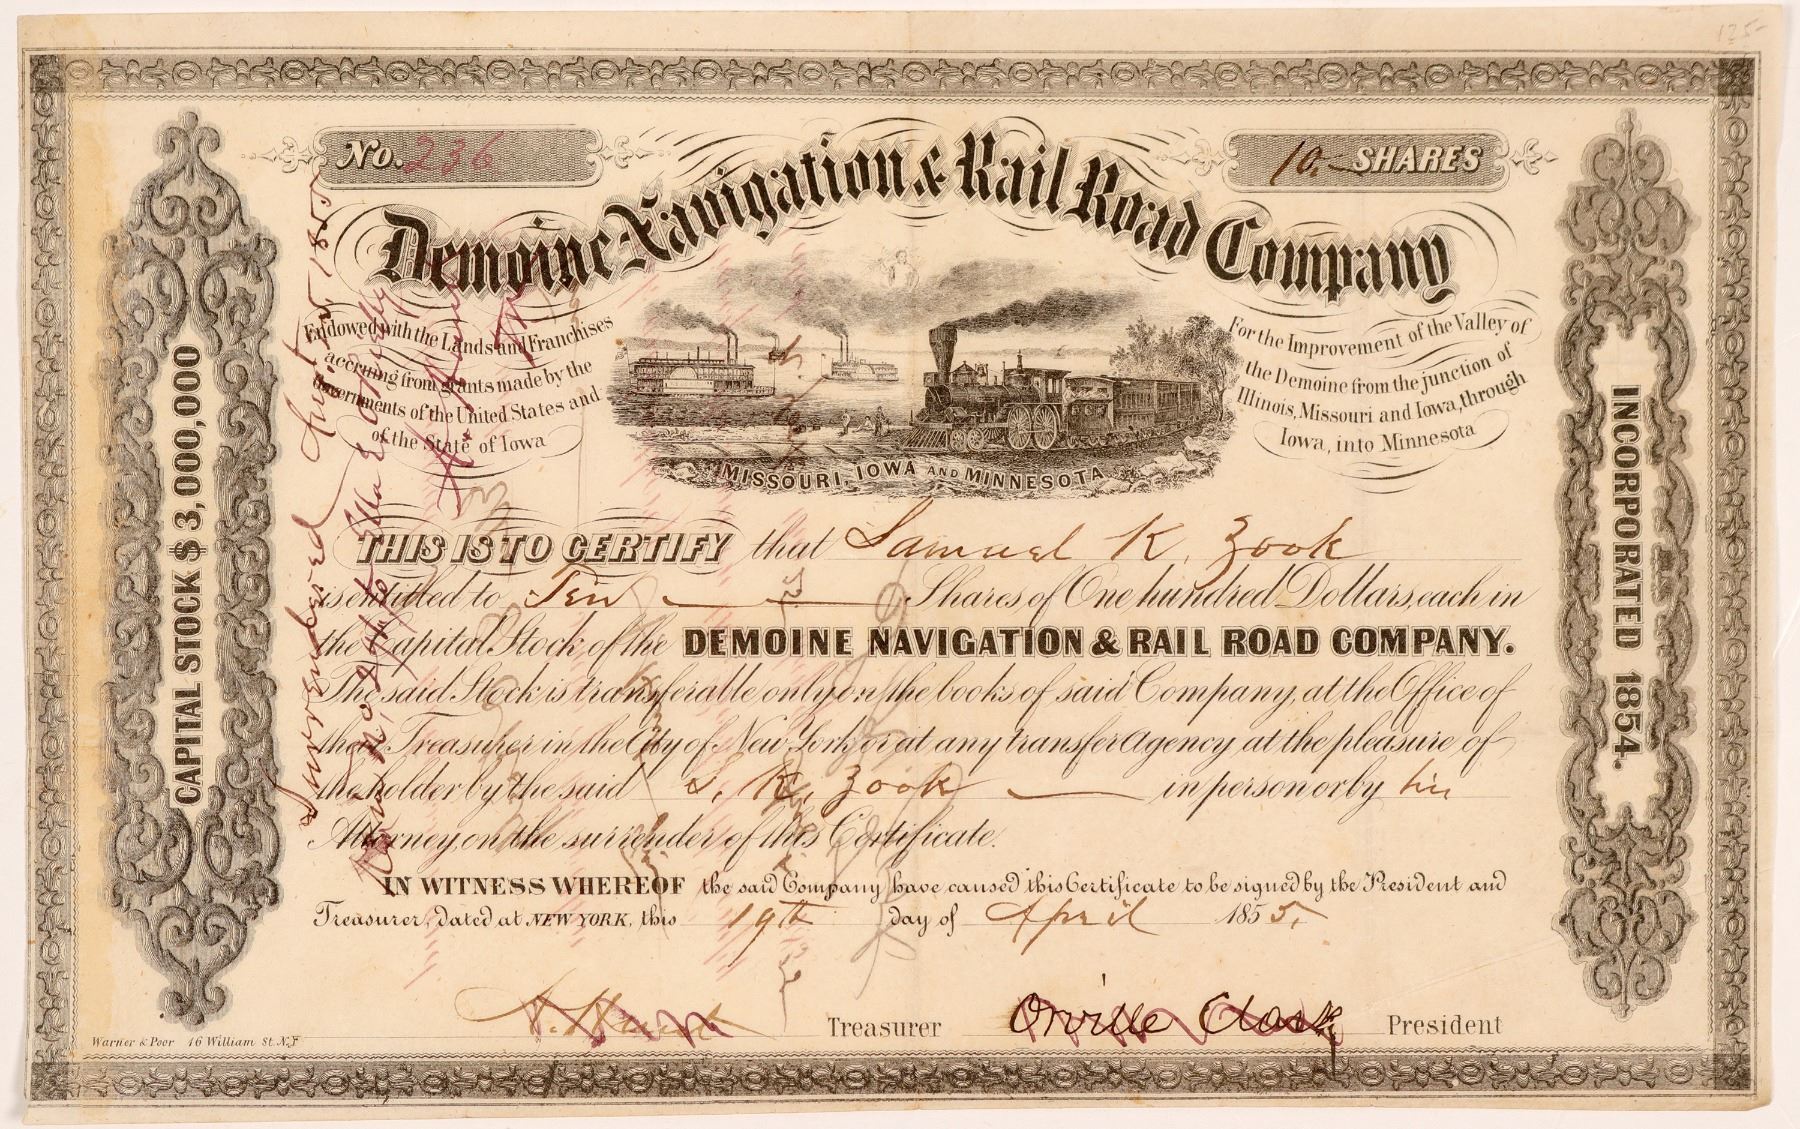 125-
No. 236
10.- SHARES
Demoine Navigation & Rail Road Company
Endowed with the Lands and Franchises
accruing from grants made by the
Governments of the United States and
of the State of Iowa
For the Improvement of the Valley of
the Demoine from the junction of
Illinois, Missouri and Iowa, through
Iowa, into Minnesota
MISSOURI, IOWA AND MINNESOTA
CAPITAL STOCK $3,000,000
INCORPORATED 1854.
THIS IS TO CERTIFY that Samuel K. Zook
is entitled to Ten Shares of One hundred Dollars, each in
the Capital Stock of the DEMOINE NAVIGATION & RAIL ROAD COMPANY.
The said Stock is transferable only on the books of said Company, at the Office of
their Treasurer in the City of New York or at any transfer Agency at the pleasure of
the holder by the said S. K. Zook in person or by his
Attorney, on the surrender of this Certificate.
IN WITNESS WHEREOF the said Company have caused this Certificate to be signed by the President and
Treasurer, dated at NEW YORK, this 19th day of April 1855.
Treasurer
Orville Clark President
Warner & Poor 46 William St. N.Y
Surrendered